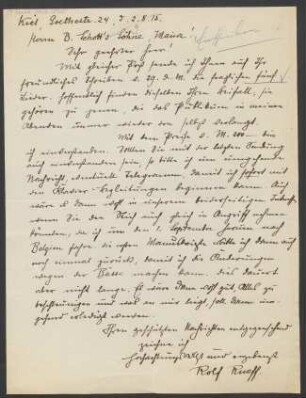 Kiel, Goethestr. 24, I, 2.8.15.
Herrn B. Schott's Söhne, Mainz!
Sehr geehrter Herr!
Mit gleicher Post sende ich Ihnen auf Ihr
freundliches Schreiben v. 29. d. M. die fraglichen fünf
Lieder, hoffentlich finden dieselben Ihren Beifall, sie
gehören zu jenen, die das Publikum in meinen
Abenden immer wieder von selbst verlangt.
Mit dem Preise v. M. 100 bin
ich einverstanden. Sollten Sie mit der letzten Sendung
auch einverstanden sein, so bitte ich um umgehende
Nachricht, eventuell Telegramm, damit ich sofort mit
den Klavier-Begleitungen beginnen kann. Auch
wäre es dann wohl in unserem beiderseitigen Interesse,
wenn Sie den Stich auch gleich in Angriff nehmen
könnten, da ich um den 1. September herum nach
Belgien fahre, die ersten Manuskripte bitte ich dann auch
noch einmal zurück, damit ich die Änderungen
wegen der Bässe machen kann, dies dauert
aber nicht lange. Es wäre dann wohl gut, Alles zu
beschleunigen und was an mir liegt, soll dann um-
gehend erledigt werden.
Ihren geschätzten Nachrichten entgegensehend
zeichne ich
hochachtungsvollst und ergebenst
Rolf Rueff